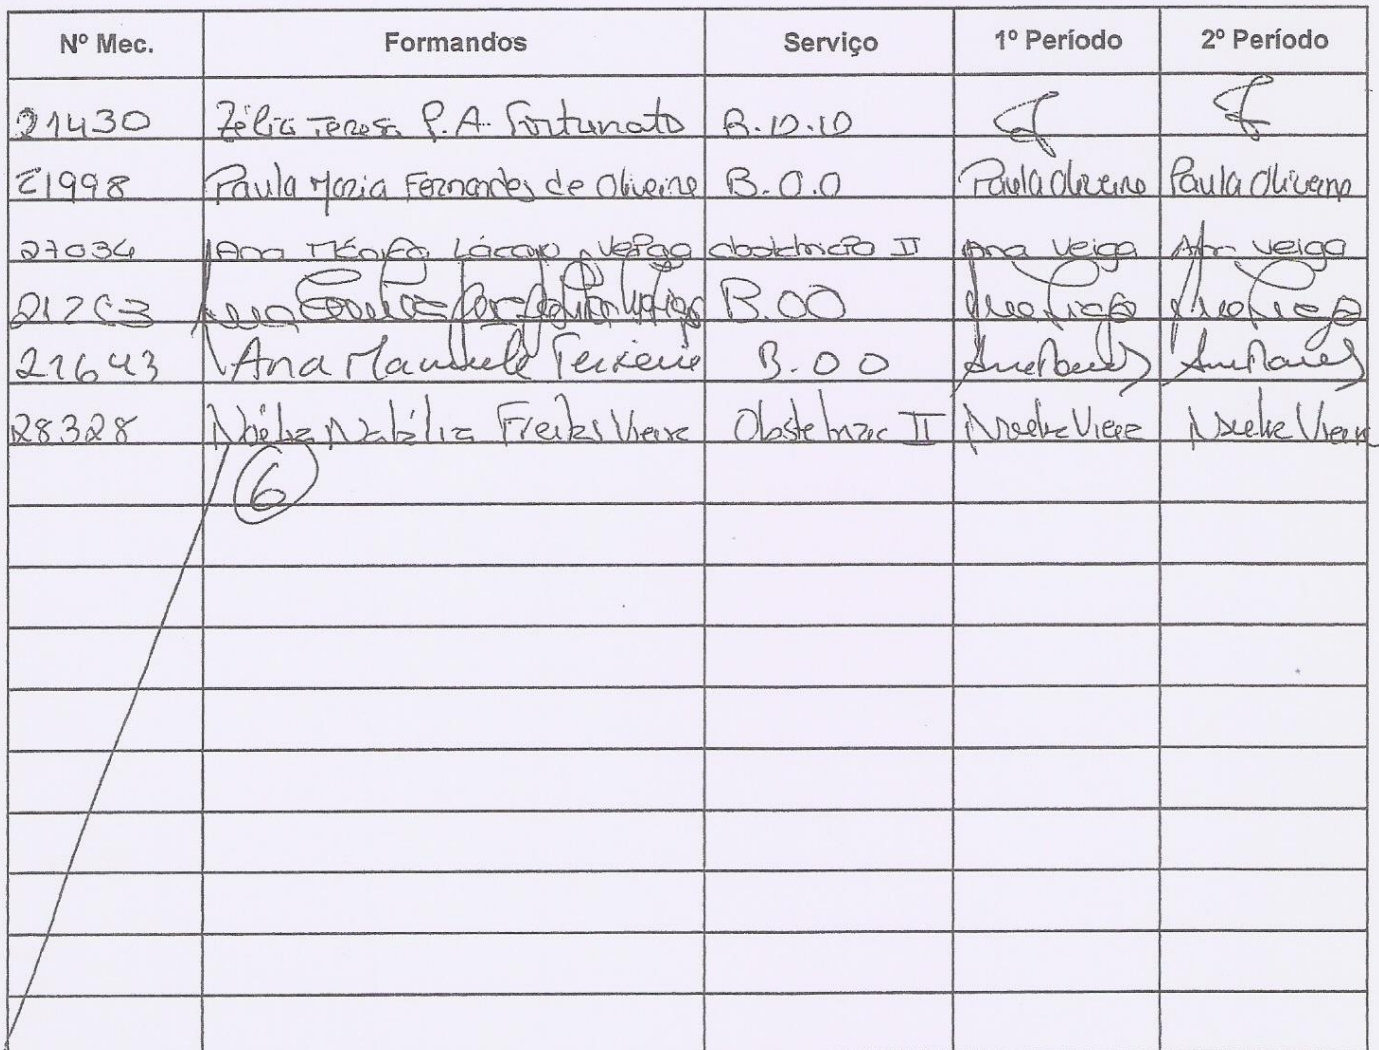 Nº Mec. Formandos Serviço 1º Período 2º Período
21430 Zélia Teresa P.A. Fortunato
21998 Paula Maria Fernandes de Oliveira B.O.O Paula Oliveira Paula Oliveira
27034 Ana Mónica Veiga obstetrícia II Ana Veiga Ana Veiga
B.OO
21643 Ana Manuela Teixeira B.OO
28328 Noélia Natália Freitas Vieira Obstetrícia II Noélia Vieira Noélia Vieira
6